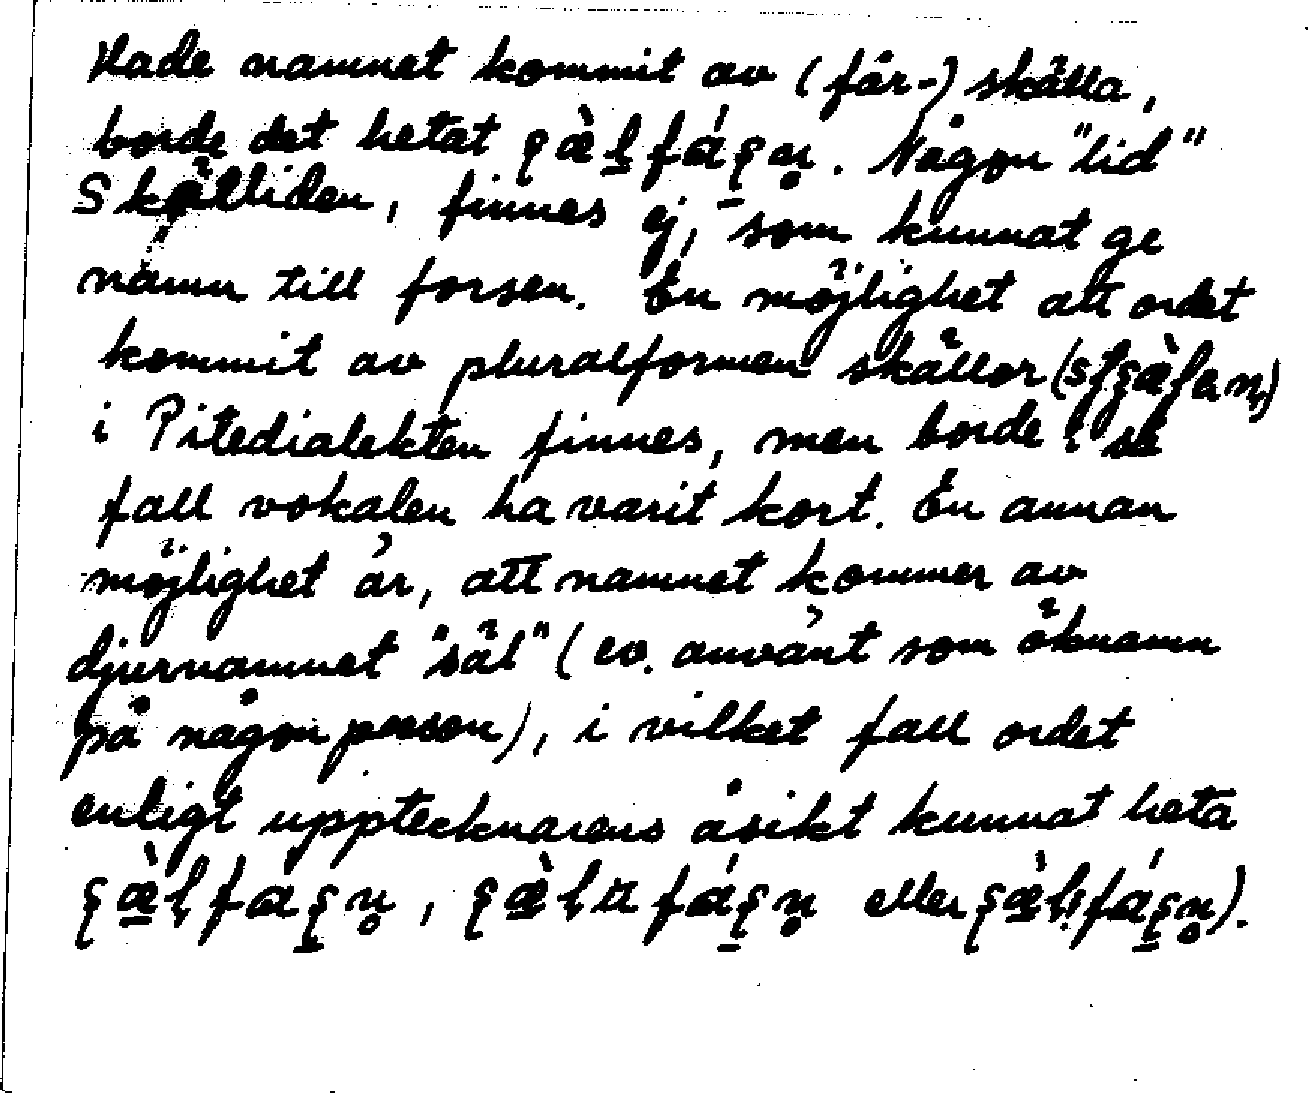 Hade namnet kommit av (får-) skälla,
borde det hetat. Någon "lid"
Skälliden, finnes ej, som kunnat ge
namn till forsen. En möjlighet att ordet
kommit av pluralformen skällor
i Pitedialekten finnes, men borde i så
fall vokalen ha varit kort. En annan
möjlighet är, att namnet kommer av
djurnamnet "säl" (ev. använt som öknamn
på någon person), i vilket fall ordet
enligt upptecknarens åsikt kunnat heta
eller